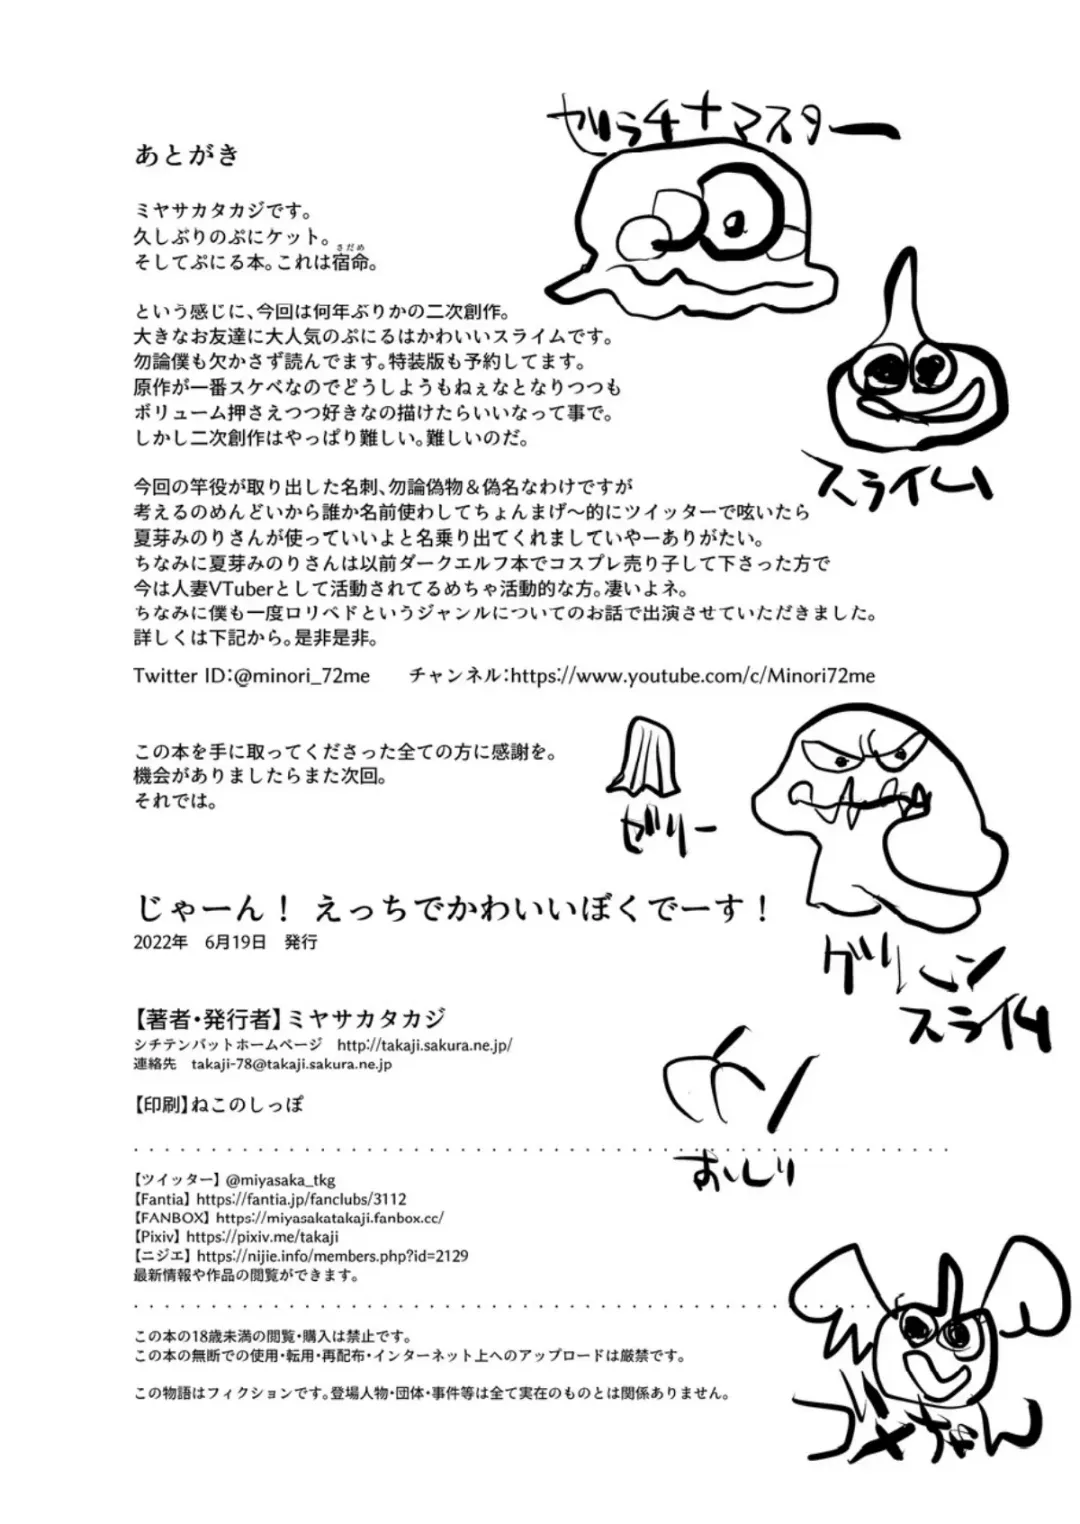 ゼラチナマスター
あとがき
ミヤサカタカジです。
久しぶりのぷにケット。
さだめ
そしてぷにる本。これは宿命。
という感じに、今回は何年ぶりかの二次創作。
大きなお友達に大人気のぷにるはかわいいスライムです。
勿論僕も欠かさず読んでます。特装版も予約してます。
原作が一番スケベなのでどうしようもねぇなとなりつつも
ボリューム押さえつつ好きなの描けたらいいなって事で。
しかし二次創作はやっぱり難しい。難しいのだ。
スライム
今回の竿役が取り出した名刺、勿論偽物＆偽名なわけですが
考えるのめんどいから誰か名前使わしてちょんまげ～的にツイッターで呟いたら
夏芽みのりさんが使っていいよと名乗り出てくれましていやーありがたい。
ちなみに夏芽みのりさんは以前ダークエルフ本でコスプレ売り子して下さった方で
今は人妻VTuberとして活動されてるめちゃ活動的な方。凄いよネ。
ちなみに僕も一度ロリベドというジャンルについてのお話で出演させていただきました。
詳しくは下記から。是非是非。
Twitter ID：@minori_72me　　チャンネル：https://www.youtube.com/c/Minori72me
この本を手に取ってくださった全ての方に感謝を。
機会がありましたらまた次回。
それでは。
ゼリー
じゃーん！ えっちでかわいいぼくでーす！
2022年　6月19日　発行
グリーン
スライム
【著者・発行者】ミヤサカタカジ
シチテンバットホームページ　http://takaji.sakura.ne.jp/
連絡先　takaji-78@takaji.sakura.ne.jp
【印刷】ねこのしっぽ
おしり
【ツイッター】@miyasaka_tkg
【Fantia】https://fantia.jp/fanclubs/3112
【FANBOX】https://miyasakatakaji.fanbox.cc/
【Pixiv】https://pixiv.me/takaji
【ニジエ】https://nijie.info/members.php?id=2129
最新情報や作品の閲覧ができます。
この本の18歳未満の閲覧・購入は禁止です。
この本の無断での使用・転用・再配布・インターネット上へのアップロードは厳禁です。
この物語はフィクションです。登場人物・団体・事件等は全て実在のものとは関係ありません。
ゴメちゃん